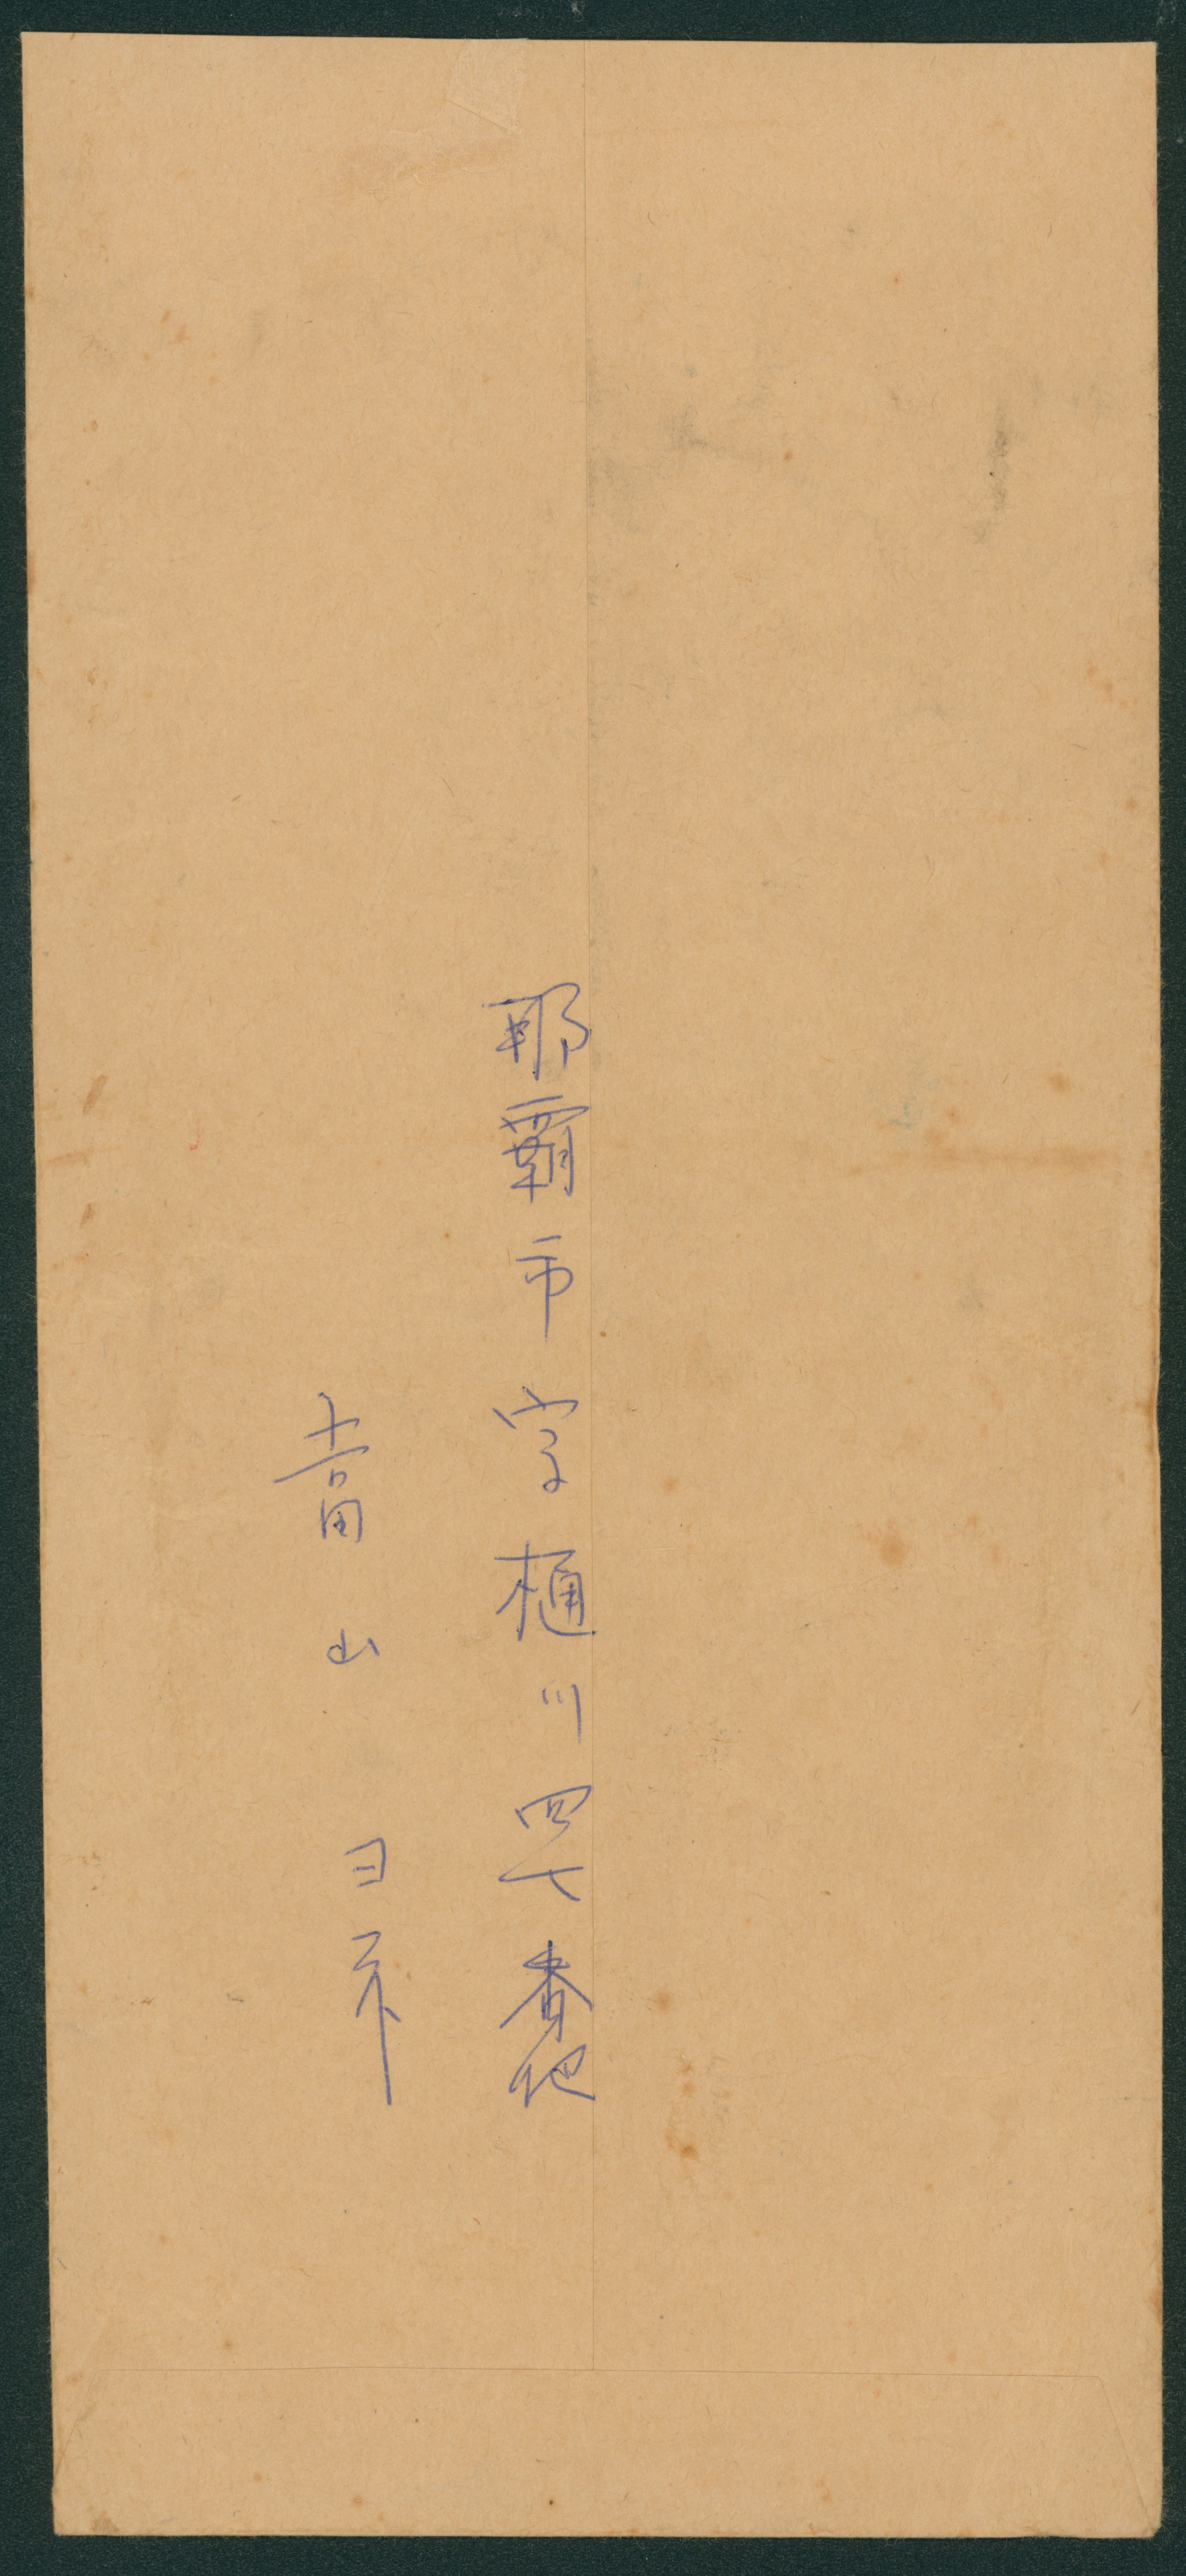 那覇市字樋川四七番地
當山ヨ